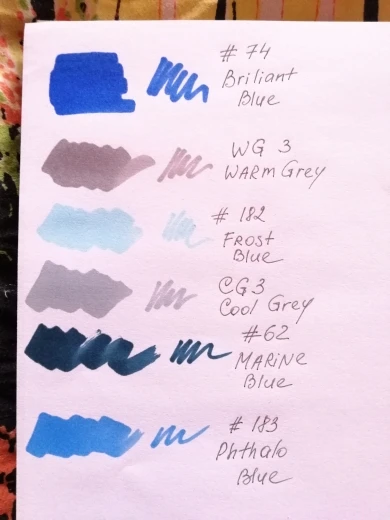 # 74
Briliant
Blue
WG 3
WARM Grey
# 182
FROST
Blue
CG3
Cool Grey
#62
MARiNe
Blue
# 183
Phthalo
Blue